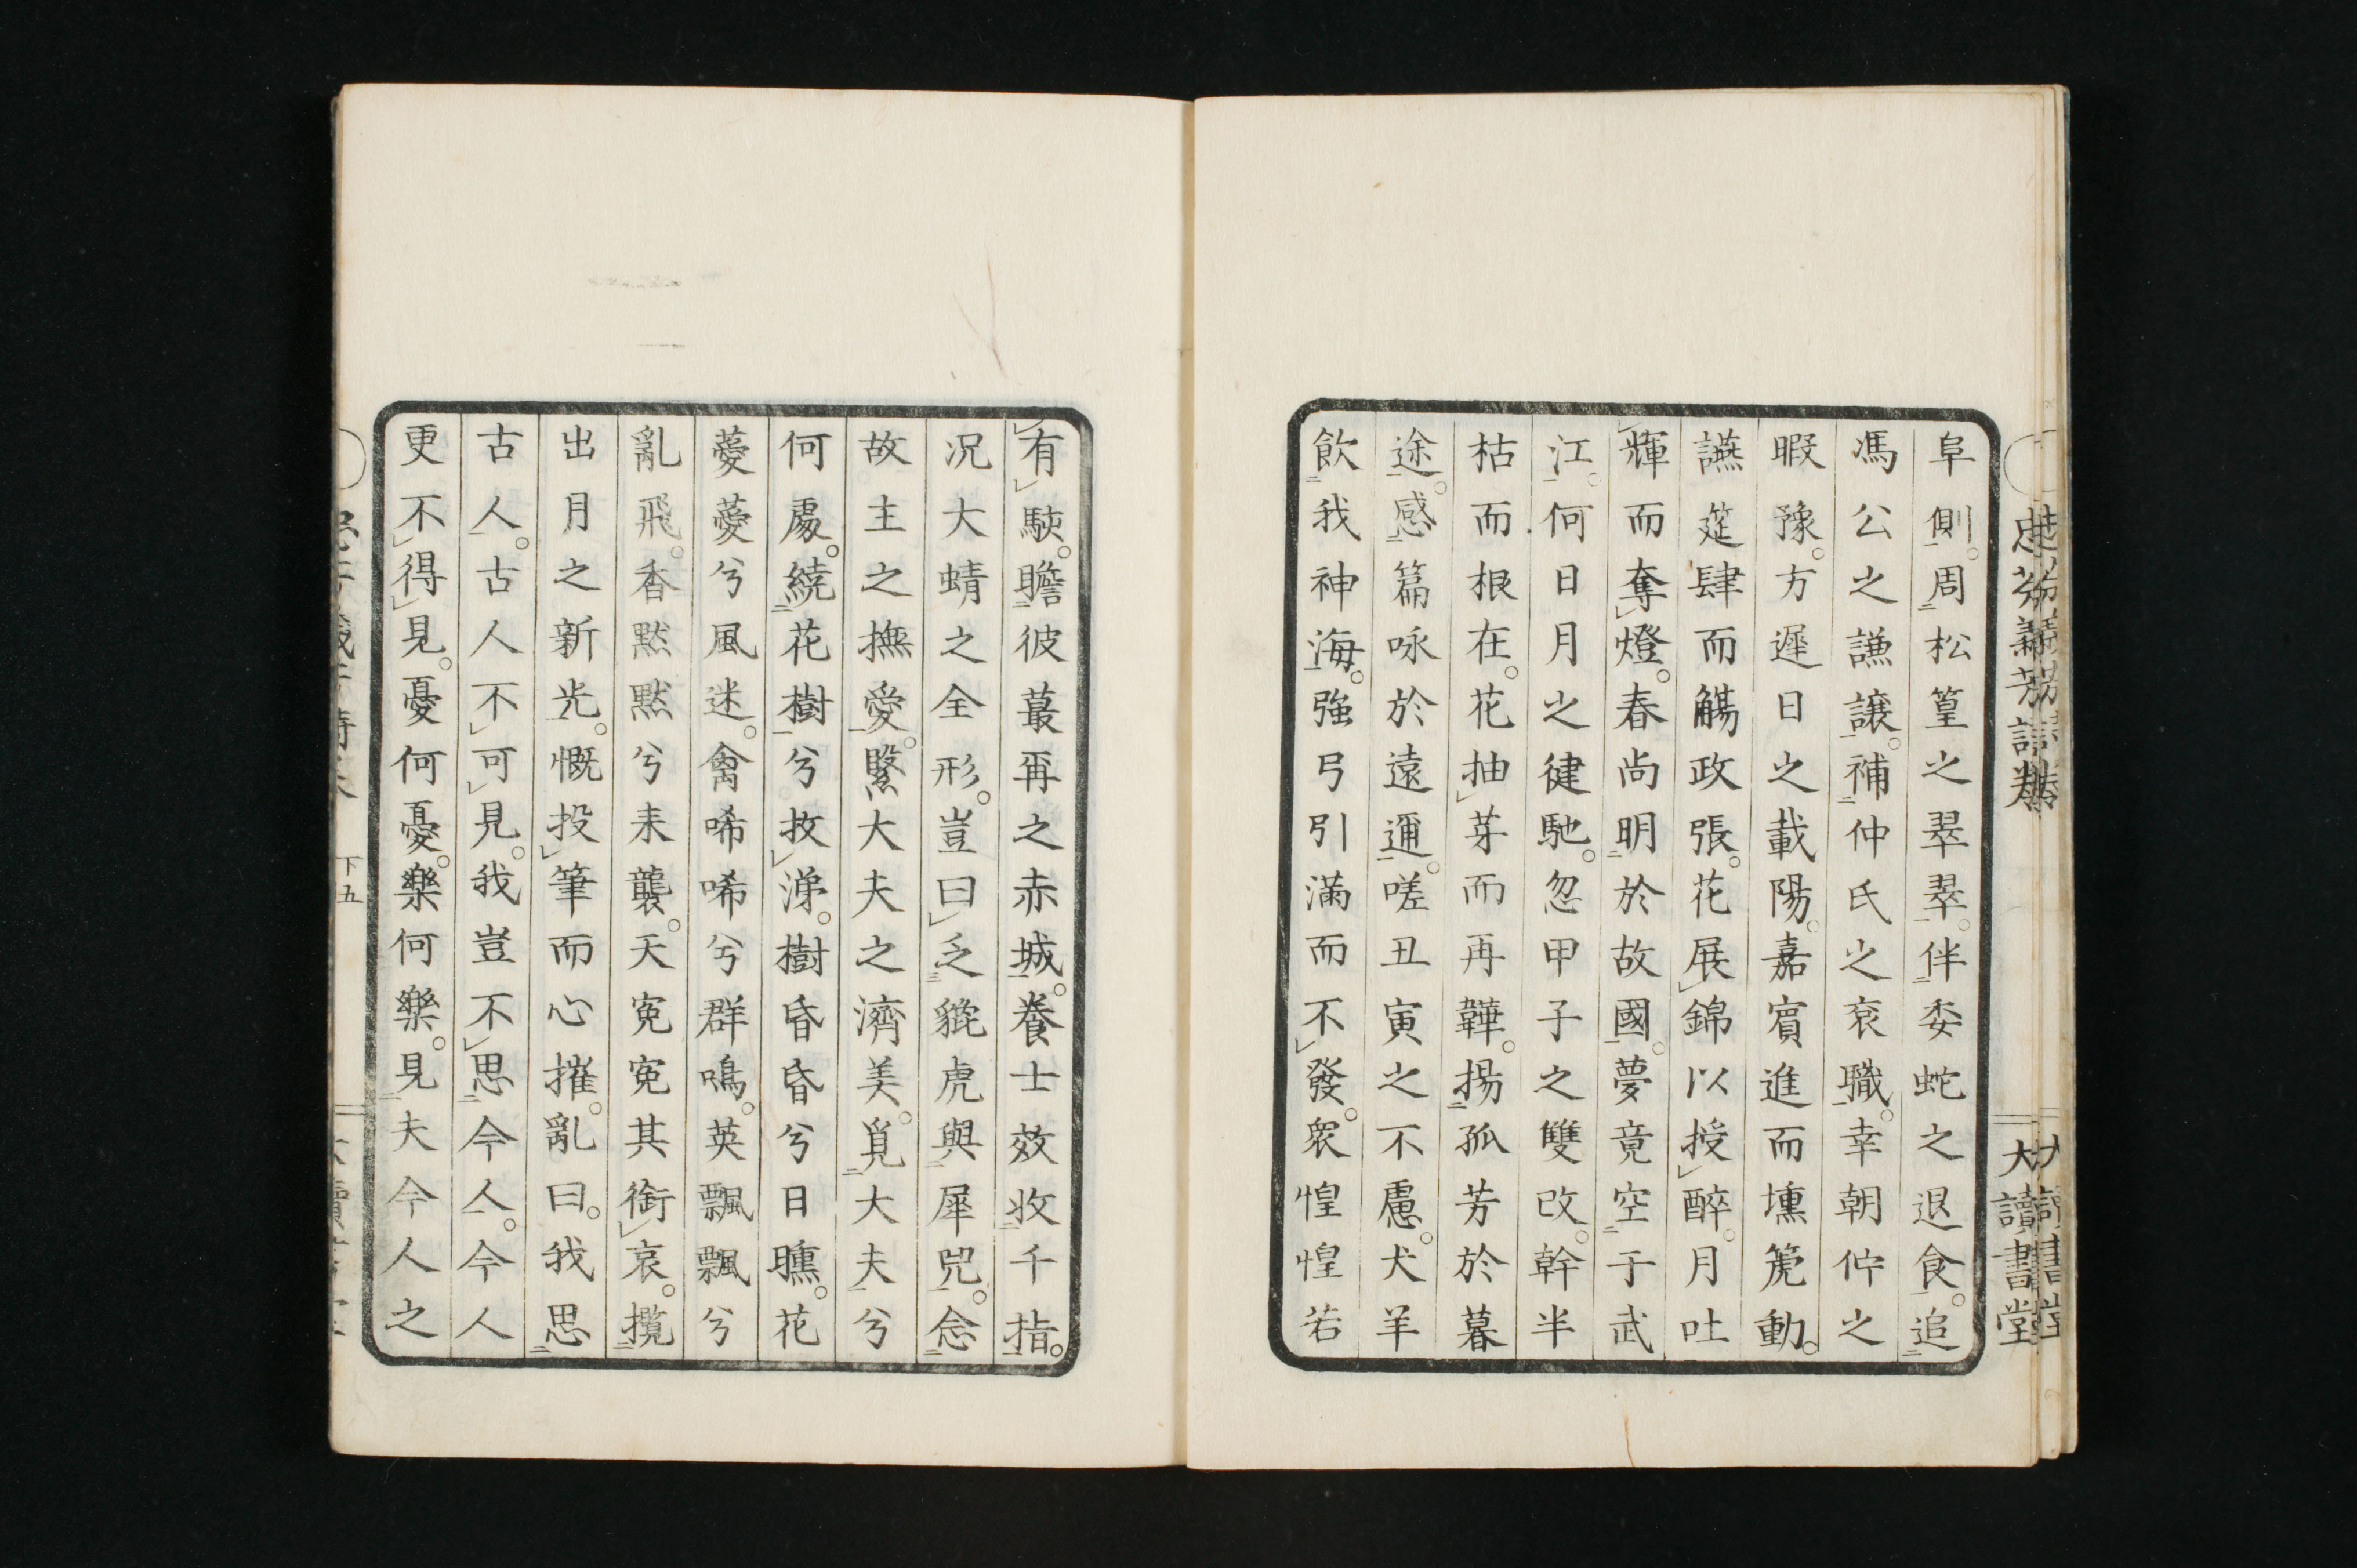 阜側。周松篁之翠翠。伴委蛇之退食。追
馮公之謙譲。補仲氏之袞職。幸朝佇之
暇豫。方遲日之載陽。嘉賓進而壎篪動。
讌筵肆而觴政張。花展錦以授醉。月吐
輝而奪燈。春尚明於故國。夢竟空于武
江。何日月之健馳。忽甲子之雙改。幹半
枯而根在。花抽芽而再韡。揚孤芳於暮
途。感篇咏於遠邇。嗟丑寅之不慮。犬羊
飲我神海。強弓引滿而不發。衆惶惶若
有駛。瞻彼蕞爾之赤城。養士效收千指。
况大蜻之全形。豈曰乏貔虎與犀兕。念
故主之撫愛。繄大夫之濟美。覓大夫兮
何處。繞花樹兮抆涕。樹昏昏兮日曛。花
薆薆兮風迷。禽唏唏兮群鳴。英飄飄兮
亂飛。香黙黙兮来襲。天寃寃其銜哀。攬
出月之新光。慨投筆而心摧。亂曰。我思
古人。古人不可見。我豈不思今人。今人
更不得見。憂何憂。樂何樂。見夫今人之
下五
大讀書堂